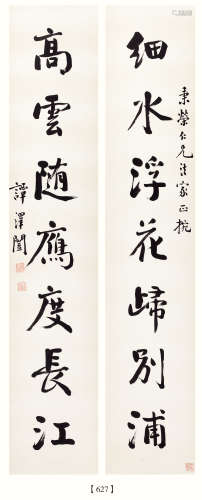 秉榮仁兄法家正捥
細水浮花歸別浦
高雲随鷹度長江
譚澤闓
【627】